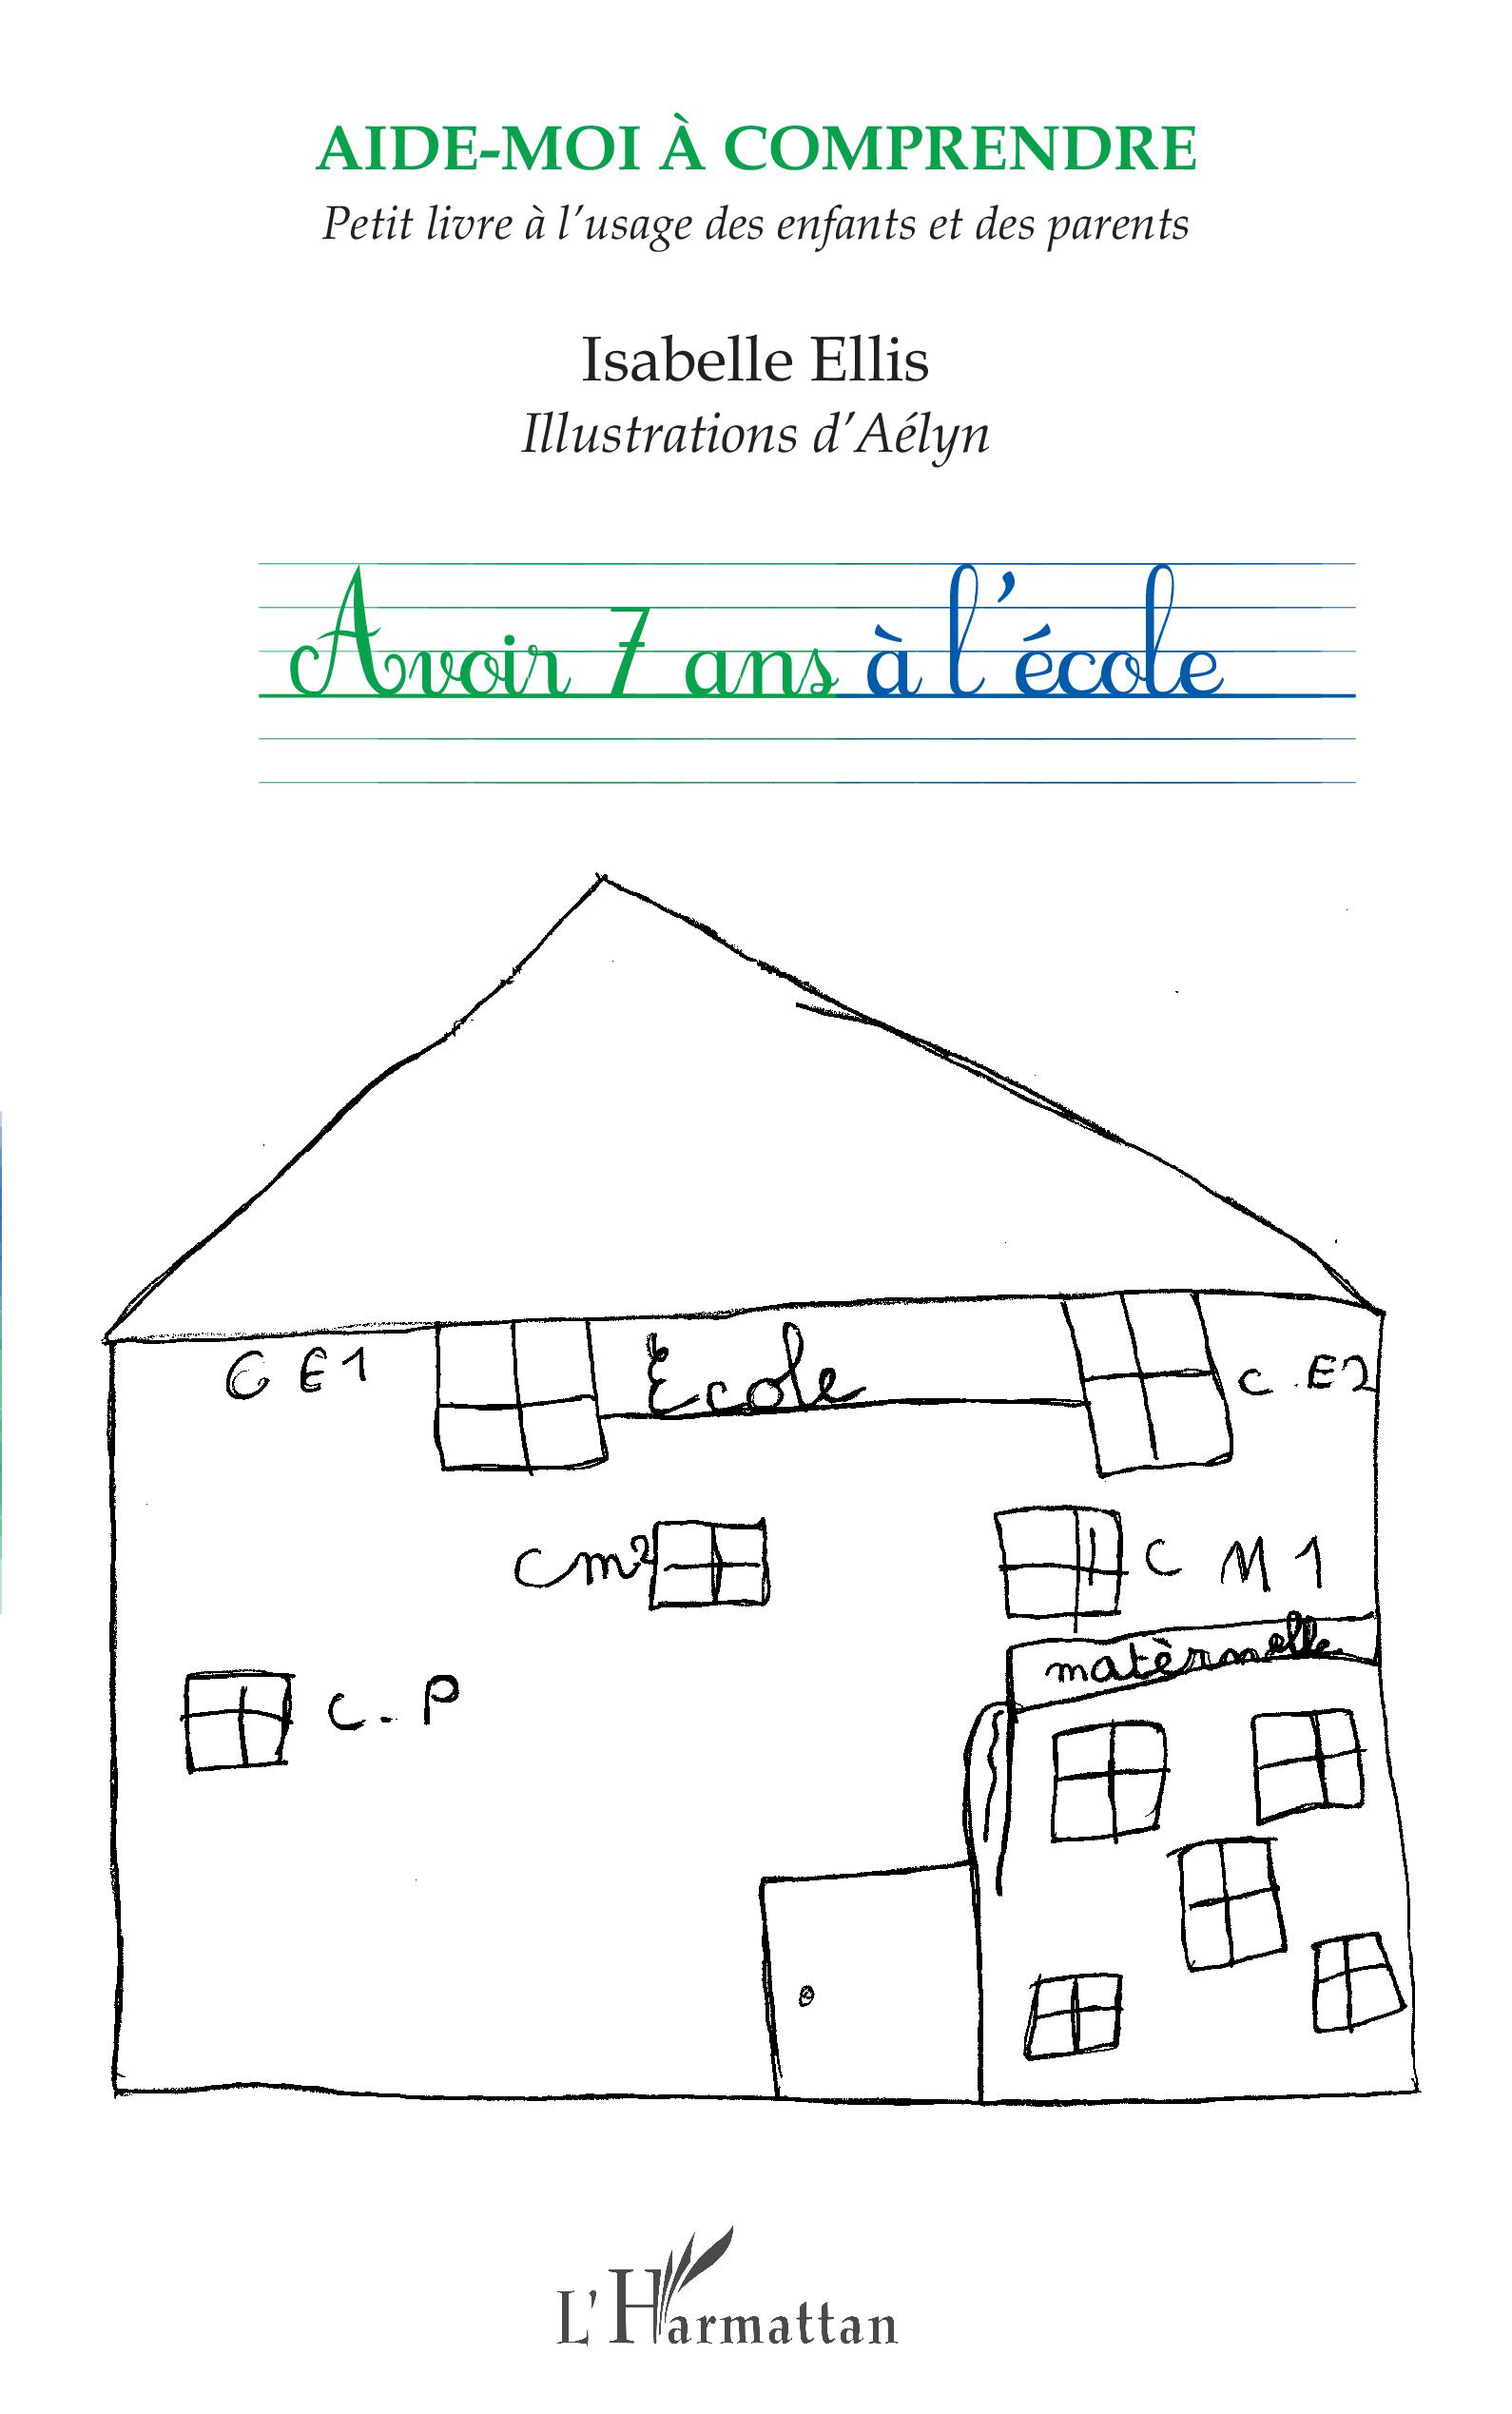 AIDE-MOI À COMPRENDRE
Petit livre à l'usage des enfants et des parents
Isabelle Ellis
Illustrations d'Aélyn
Avoir 7 ans à l'école
CE1
École
C.E2
Cm2
CM1
matèrnelle
C.P
L'Harmattan